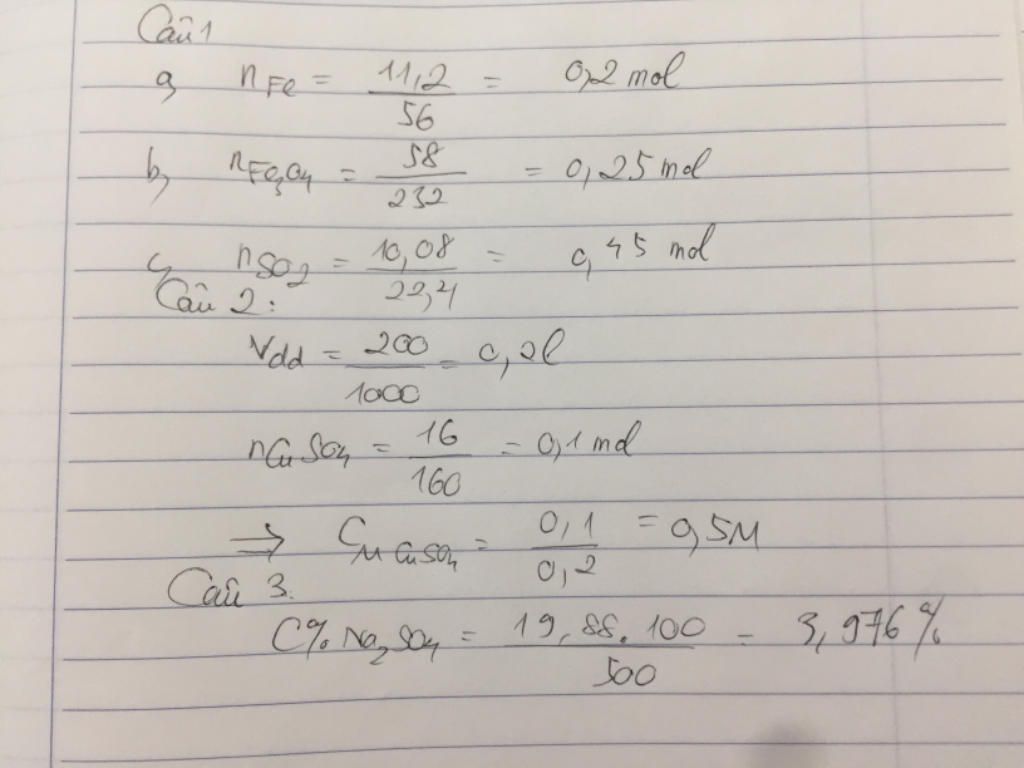 Câu 1
a, nFe = 11,2/56 = 0,2 mol
b, nFe3O4 = 58/232 = 0,25 mol
c, nSO2 = 10,08/22,4 = 0,45 mol
Câu 2:
Vdd = 200/1000 = 0,2l
nCuSO4 = 16/160 = 0,1 mol
=> CM CuSO4 = 0,1/0,2 = 0,5M
Câu 3.
C% Na2SO4 = 19,88.100/500 = 3,976%